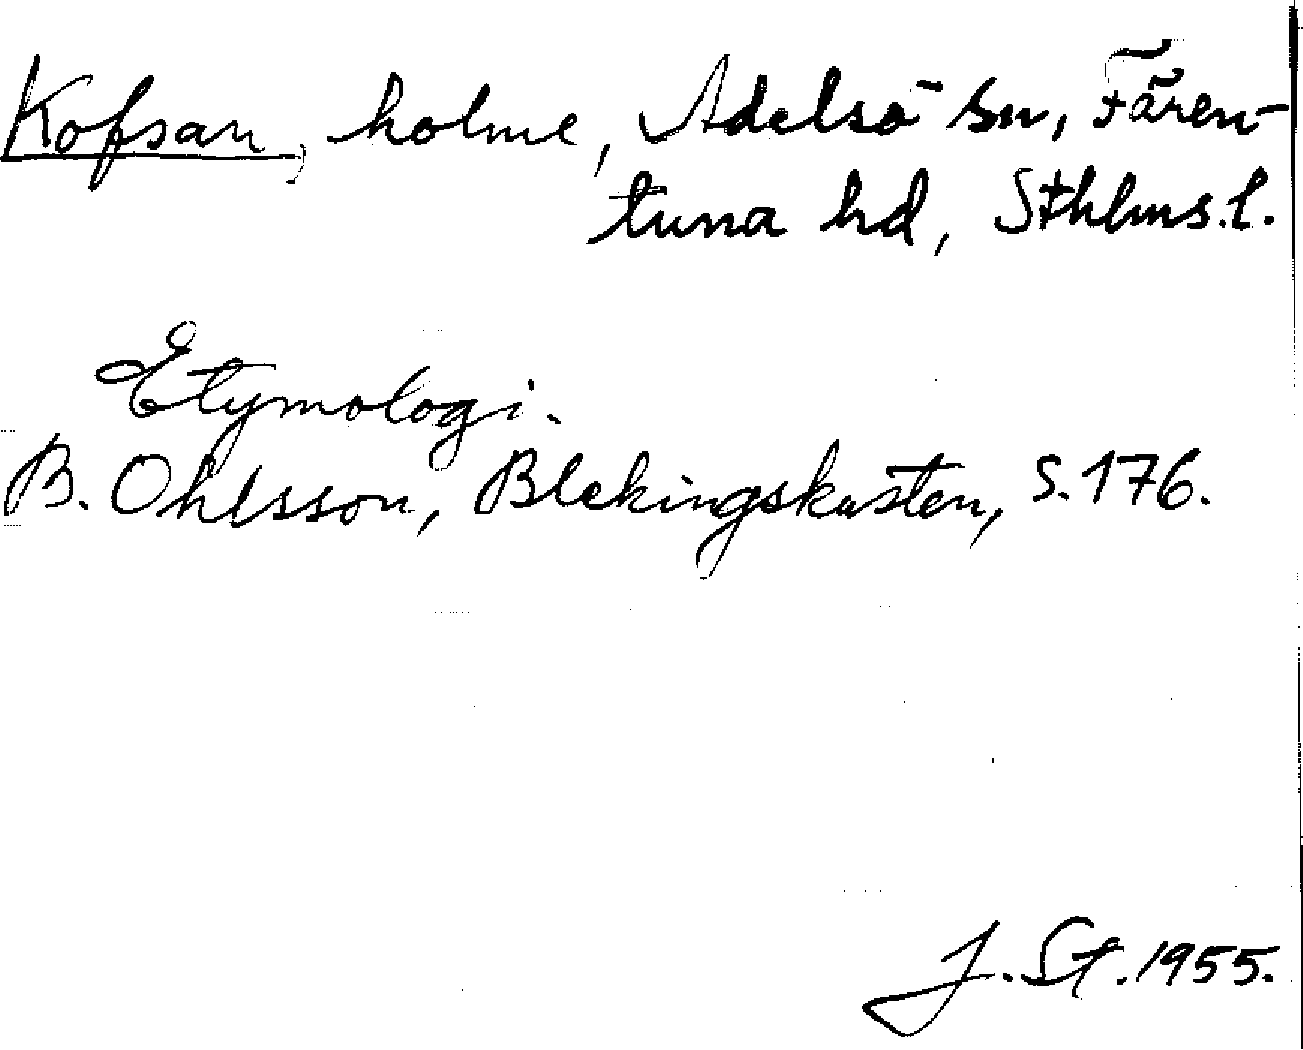 Kofsan, holme, Adelsö sn, Fären-
tuna hd, Sthlms.l.
Etymologi.
B. Ohlsson, Blekingskusten, S.176.
J. St. 1955.